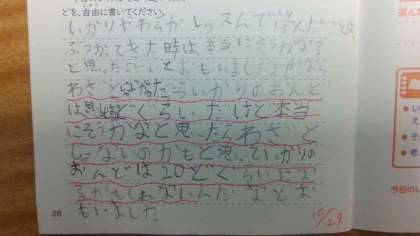 どを、自由に書いてください。
いかりやわらかレッスンで学んだことは
ぶつかってきた時は、本当にそうかな?
と思ったらいいとおもいました。
わざとだったらいかりのおんど
は ど ぐらい だけど本当
にそうかなと思ったらわざと
じゃないのかもと思っていかりの
おんどは20どぐらいにな
るかもしれないんだなとお
もいました
28
10/29
今回のレ
選んだ